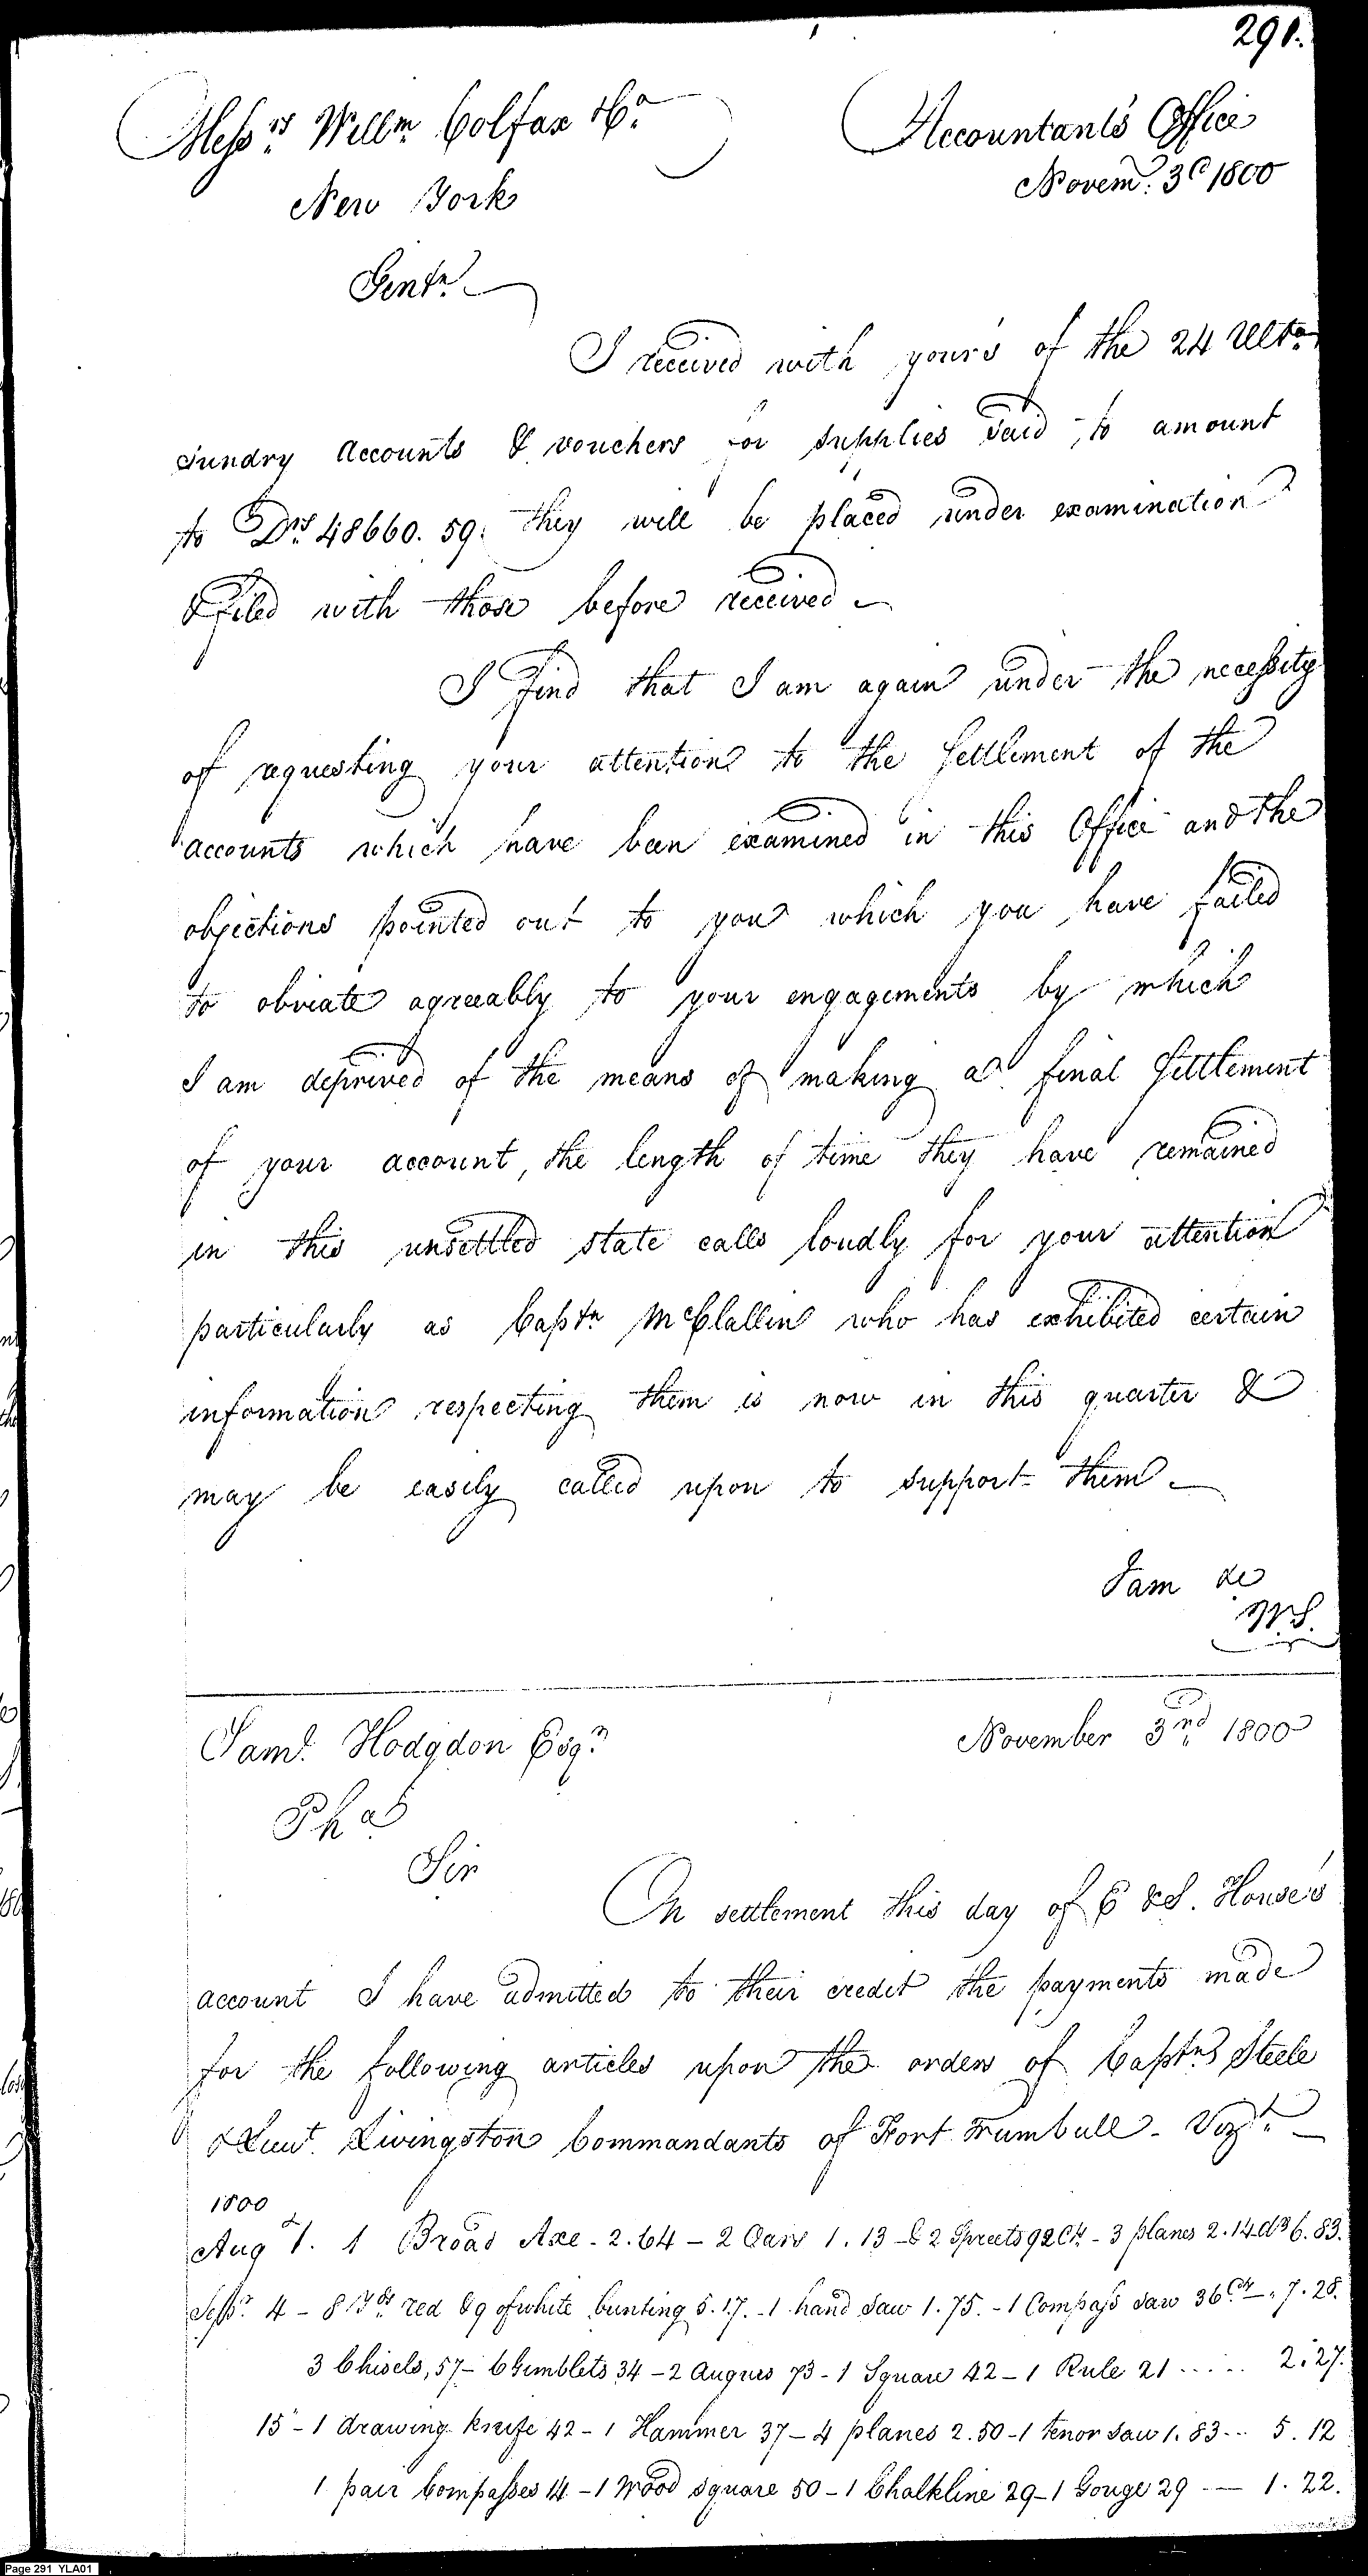 291.
Messrs. Willm. Colfax & Co.
Accountants Office
New York
Novem. 3d 1800
Gentn.
I received with yours of the 24 Ulto.
sundry accounts & vouchers for supplies said to amount
to Drs. 48660.59. they will be placed under examination
& filed with those before received
I find that I am again under the necessity
of requesting your attention to the Settlement of the
accounts which have been examined in this Office and the
objections pointed out to you which you have failed
to obviate agreeably to your engagements by which
I am deprived of the means of making a final Settlement
of your account, the length of time they have remained
in this unsettled state calls loudly for your attention
particularly as Captn McClallen who has exhibited certain
information respecting them is now in this quarter &
may be easily called upon to support them
I am &c
W.S.
Saml. Hodgdon Esqr.
November 3rd 1800
Pha
Sir
On settlement this day of E & S. House's
account I have admitted to their credit the payments made
for the following articles upon the orders of Captns Steele
& Lieut. Livingston Commandants of Fort Trumbull - Vizt.
1800
Aug 1. 1 Broad Axe - 2.64 - 2 Oars 1.13 - & 2 Spreets 92 Cts - 3 planes 2.14 drs 6.83.
Sepr. 4 - 8 Yds. red & 9 of white bunting 5.17. - 1 hand saw 1.75. - 1 Compass saw 36 Cts - 7.28.
3 Chisels, 57 - 6 Gimblets 34 - 2 Augres 73 - 1 Square 42 - 1 Rule 21 ..... 2.27.
15 - 1 drawing knife 42 - 1 Hammer 37 - 4 planes 2.50 - 1 tenor saw 1.83 ... 5.12
1 pair Compasses 14 - 1 Wood square 50 - 1 Chalkline 29 - 1 Gouge 29 — 1.22.
Page 291 YLA01